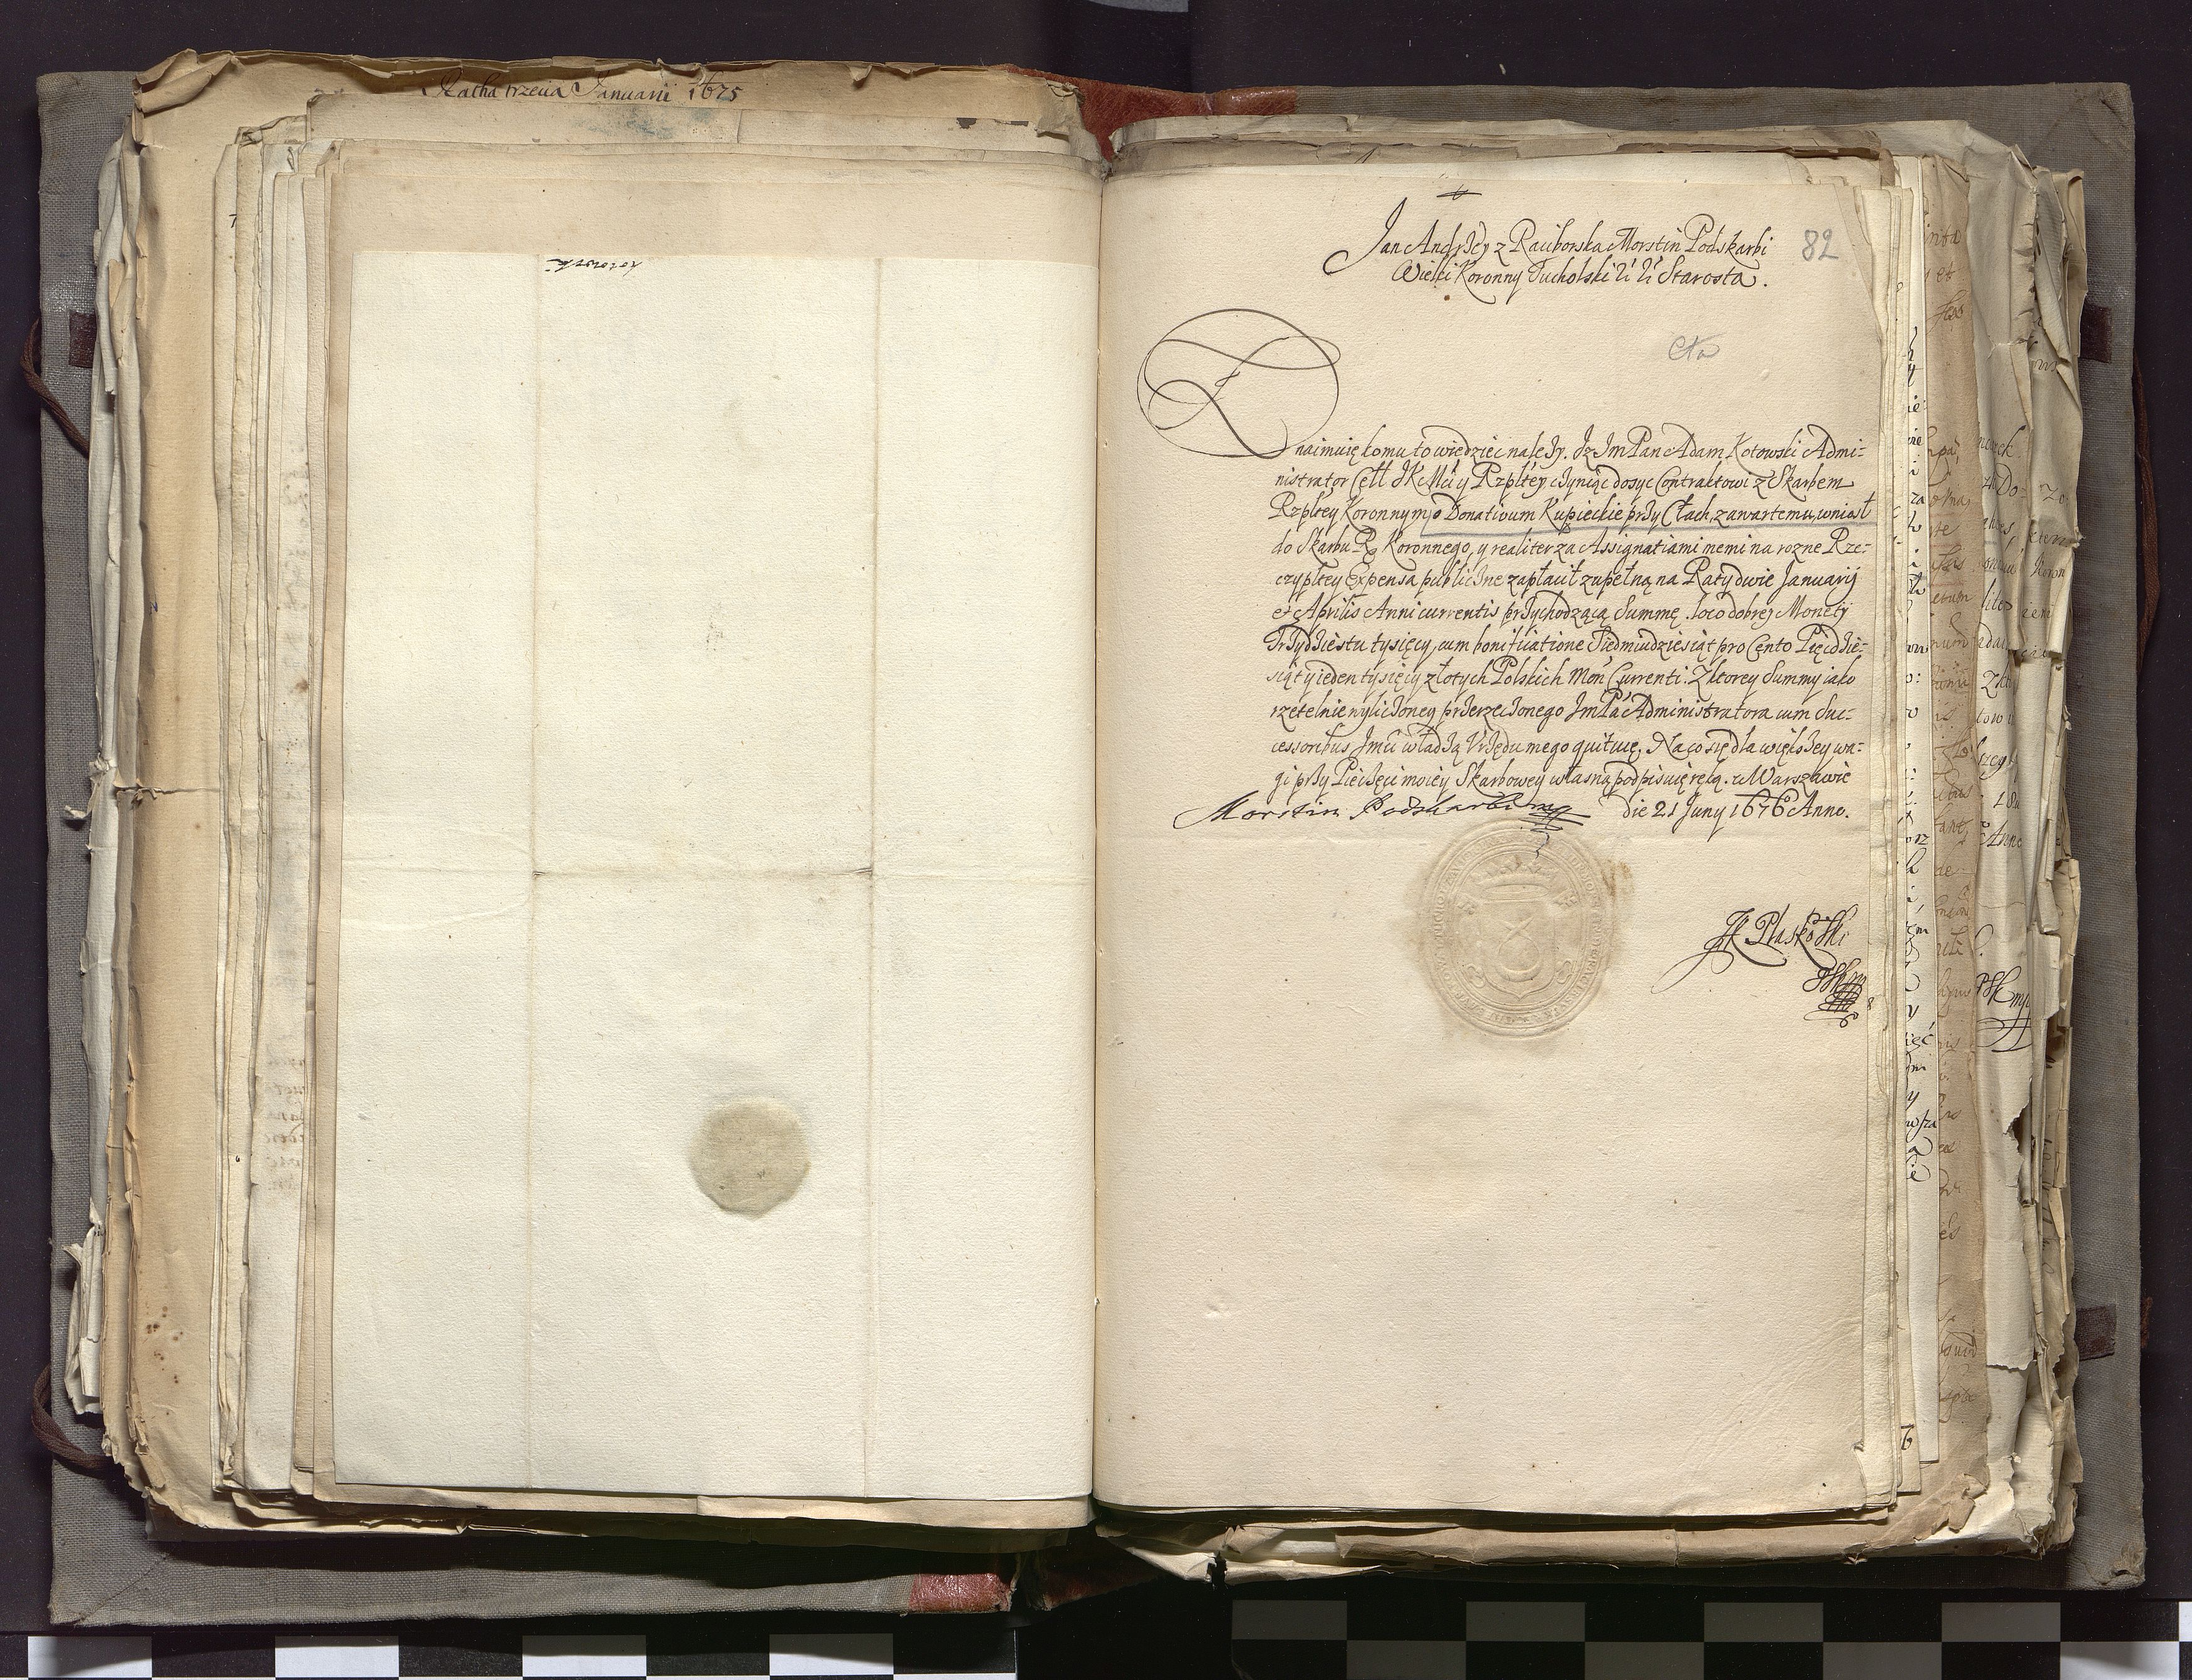 Ratha trzecia Januarii 1675
Kotowski
Jan Andrzey z Raciborska Morstin Podskarbi
Wielki Koronny Tucholski Starosta.
82
Cła
Znaimuię komu to wiedziec nalezy. Iz Im Pan Adam Kotowski Admi-
nistrator Cełł JKMci y Rzpltey czyniąc dosyc Contraktowi z Skarbem
Rzpltey Koronnym o Donativum Kupieckie przy Cłach, zawartemu, wniosł
do Skarbu R Koronnego, y realiter za Assignatiami memi na rozne Rze-
czypltey Expensa publiczne zapłacił zupełną na Raty dwie Januarij
et Aprilis Anni currentis przychodzącą Summę. loco dobrej Monety
Trzydziestu tysięcy, cum bonificatione Siedmiudziesiąt pro Cento Pięcdzie-
siąt y ieden tysięcy złotych Polskich Mon Currenti. Z ktorey Summy iako
rzetelnie wyliczoney przerzeczonego Im Pa Administratora cum Suc-
cessoribus Jmci władzą Urzędu mego quituię. Na co się dla większey wa-
gi przy Pieczęci moiey Skarbowey własną podpisuię ręką. w Warszawie
die 21 Juny 1676 Anno.
Morstin Podskarbi mp
JK Płaskowski